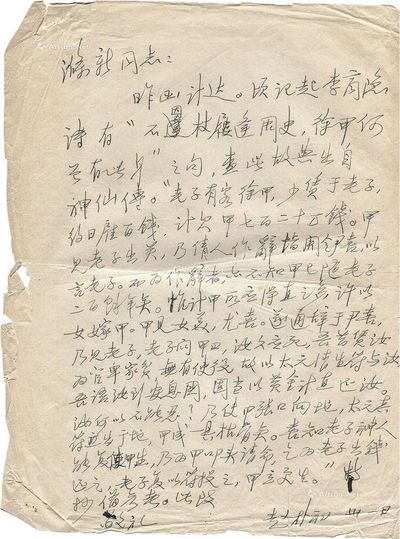 滌新同志：
昨函计达。顷记起李商隐
诗有“不因杖屦逢周史，徐甲何
曾有此身”之句，查此故典出自
神仙传。“老子有客徐甲，少赁于老子，
约日雇百钱，计欠甲七百二十万钱。甲
见老子出关，乃倩人作辭诣関令尹喜，以
言老子。而为作辭者，亦不知甲已随老子
二百餘年矣。惟计甲所应得直之多，许以
女嫁甲。甲见女美，尤喜。遂通辞于尹喜，
乃见老子，老子问甲曰，汝久应死，吾昔赁汝
为官卑家贫，無有使役，故以太玄清生符与汝
吾语汝到安息国，固当以黄金计直还汝
汝何以不能忍？乃使甲張口向地，太玄真
符立出于地，甲成一具枯骨矣。喜知老子神人
能复使甲生，乃为甲叩头请命，乞为老子出钱
还之，老子复以符投之，甲立更生。”
抄備参考。此致
敬礼 赵朴初 卅一日